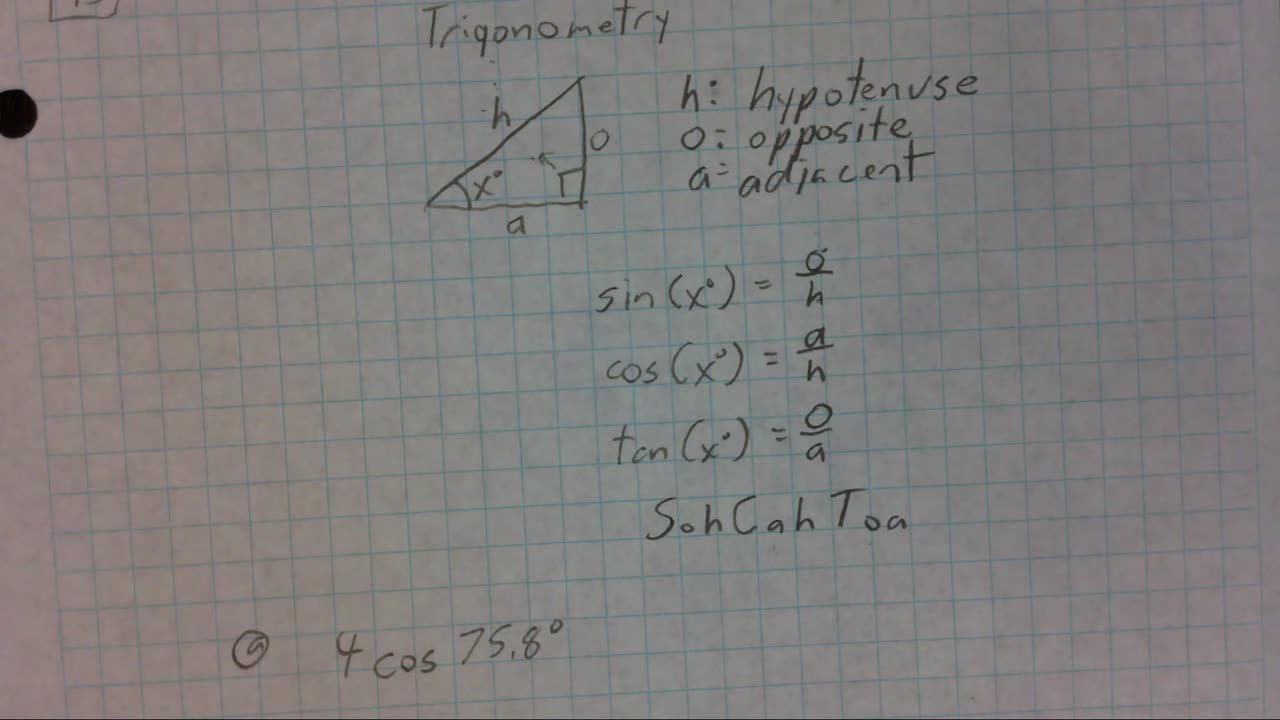 Trigonometry
h
o
x°
a
h: hypotenuse
o: opposite
a: adjacent
sin(x°) = o/h
cos(x°) = a/h
tan(x°) = o/a
SohCahToa
ⓐ 4 cos 75.8°